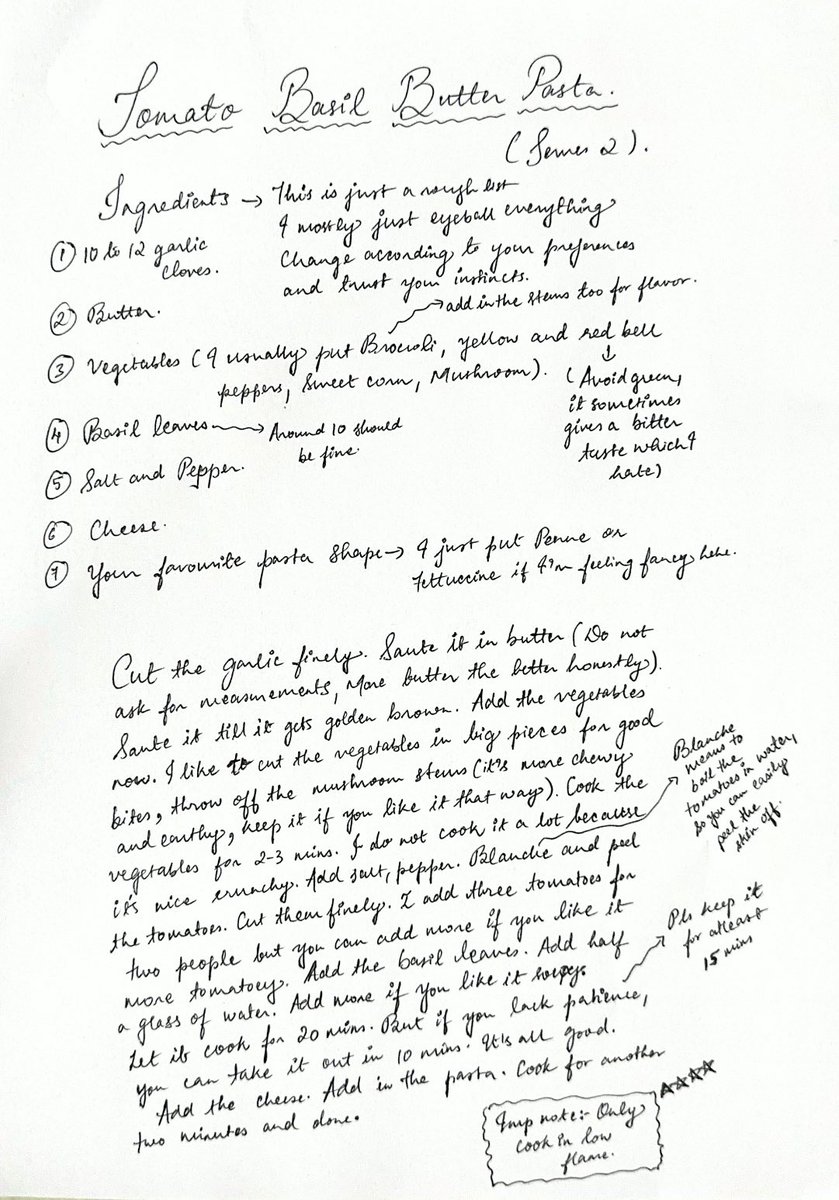 Tomato Basil Butter Pasta.
(Serves 2).
Ingredients → This is just a rough list
I mostly just eyeball everything
Change according to your preferences
and trust your instincts.
① 10 to 12 garlic
cloves.
② Butter.
→ add in the stems too for flavor.
③ Vegetables (I usually put Brocolli, yellow and red bell
peppers, Sweet corn, Mushroom).
(Avoid green,
it sometimes
gives a bitter
taste which I
hate)
④ Basil leaves → Around 10 should
be fine.
⑤ Salt and Pepper.
⑥ Cheese.
⑦ Your favourite pasta shape → I just put Penne or
Fettuccine if I'm feeling fancy hehe.
Cut the garlic finely. Saute it in butter (Do not
ask for measurements, More butter the better honestly).
Saute it till it gets golden brown. Add the vegetables
now. I like to cut the vegetables in big pieces for good
bites, throw off the mushroom stems (it's more chewy
and earthy, keep it if you like it that way). Cook the
vegetables for 2-3 mins. I do not cook it a lot because
it's nice crunchy. Add salt, pepper. Blanche and peel
the tomatoes. Cut them finely. I add three tomatoes for
two people but you can add more if you like it
more tomatoey. Add the basil leaves. Add half
a glass of water. Add more if you like it
Let it cook for 20 mins. But if you lack patience,
you can take it out in 10 mins. It's all good.
Add the cheese. Add in the pasta. Cook for another
two minutes and done.
Blanche
means to
boil the
tomatoes in water,
so you can easily
peel the
skin off.
Pls keep it
for atleast
15 mins
Imp note:- Only
cook in low
flame.